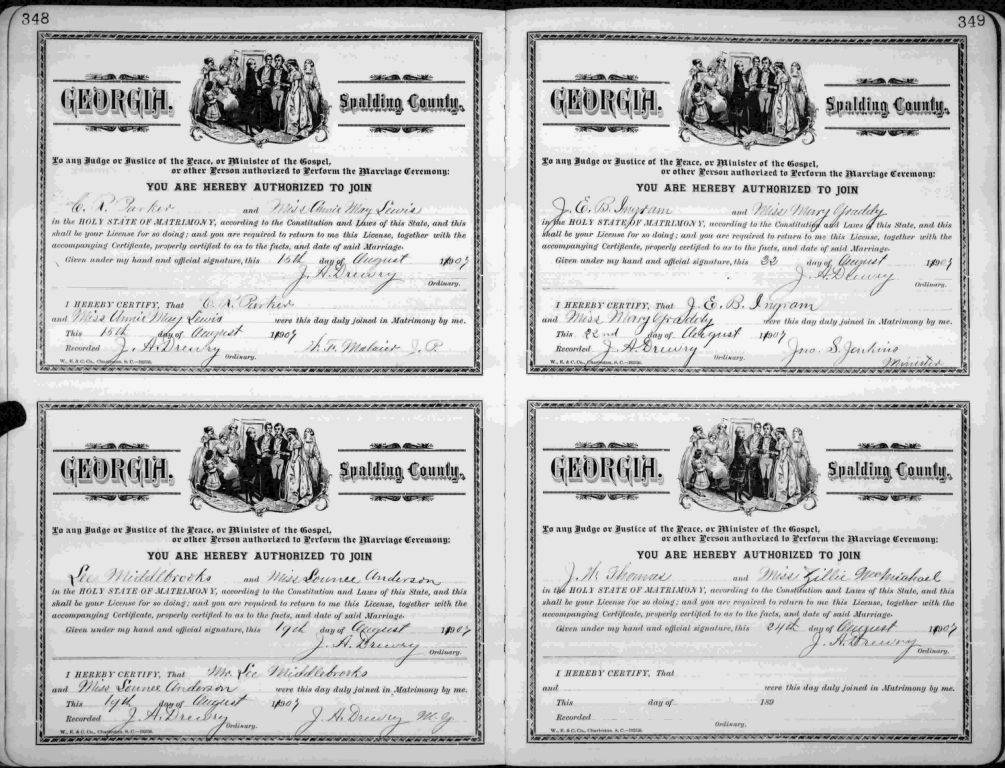 348
GEORGIA. Spalding County.
To any Judge or Justice of the Peace, or Minister of the Gospel,
or other Person authorized to Perform the Marriage Ceremony:
YOU ARE HEREBY AUTHORIZED TO JOIN
C. R. Parker and Miss Annie May Lewis
in the HOLY STATE OF MATRIMONY, according to the Constitution and Laws of this State, and this
shall be your License for so doing; and you are required to return to me this License, together with the
accompanying Certificate, properly certified to as to the facts, and date of said Marriage.
Given under my hand and official signature, this 15th day of August 1907
J. A. Drewry
Ordinary.
I HEREBY CERTIFY, That C. R. Parker
and Miss Annie May Lewis were this day duly joined in Matrimony by me.
This 15th day of August 1907
Recorded J. A. Drewry F. J. P.
Ordinary.
W., E. & C. Co., Charleston, S. C.
GEORGIA. Spalding County.
To any Judge or Justice of the Peace, or Minister of the Gospel,
or other Person authorized to Perform the Marriage Ceremony:
YOU ARE HEREBY AUTHORIZED TO JOIN
Lee Middlbrooks and Miss Lounee Anderson
in the HOLY STATE OF MATRIMONY, according to the Constitution and Laws of this State, and this
shall be your License for so doing; and you are required to return to me this License, together with the
accompanying Certificate, properly certified to as to the facts, and date of said Marriage.
Given under my hand and official signature, this 19th day of August 1907
J. A. Drewry
Ordinary.
I HEREBY CERTIFY, That Mr. Lee Middlebrooks
and Miss Lounee Anderson were this day duly joined in Matrimony by me.
This 19th day of August 1907
Recorded J. A. Drewry J. A. Drewry M. G.
Ordinary.
W., E. & C. Co., Charleston, S. C.
349
GEORGIA. Spalding County.
To any Judge or Justice of the Peace, or Minister of the Gospel,
or other Person authorized to Perform the Marriage Ceremony:
YOU ARE HEREBY AUTHORIZED TO JOIN
J. E. B. Ingram and Miss Mary Graddy
in the HOLY STATE OF MATRIMONY, according to the Constitution and Laws of this State, and this
shall be your License for so doing; and you are required to return to me this License, together with the
accompanying Certificate, properly certified to as to the facts, and date of said Marriage.
Given under my hand and official signature, this 22 day of August 1907
J. A. Drewry
Ordinary.
I HEREBY CERTIFY, That J. E. B. Ingram
and Miss Mary Graddy were this day duly joined in Matrimony by me.
This 22nd day of August 1907
Recorded J. A. Drewry Jno. S. Jenkins
Ordinary. Minister
W., E. & C. Co., Charleston, S. C.
GEORGIA. Spalding County.
To any Judge or Justice of the Peace, or Minister of the Gospel,
or other Person authorized to Perform the Marriage Ceremony:
YOU ARE HEREBY AUTHORIZED TO JOIN
J. W. Thomas and Miss Lillie McMichael
in the HOLY STATE OF MATRIMONY, according to the Constitution and Laws of this State, and this
shall be your License for so doing; and you are required to return to me this License, together with the
accompanying Certificate, properly certified to as to the facts, and date of said Marriage.
Given under my hand and official signature, this 24th day of August 1907
J. A. Drewry
Ordinary.
I HEREBY CERTIFY, That
and were this day duly joined in Matrimony by me.
This day of 189
Recorded
Ordinary.
W., E. & C. Co., Charleston, S. C.